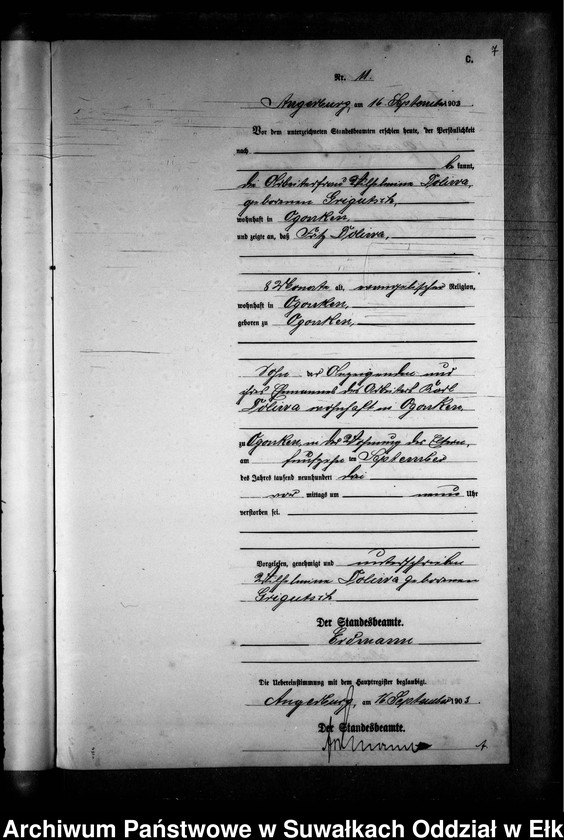 7
C.
Nr. 11.
Angerburg, am 16 September 1903.
Vor dem unterzeichneten Standesbeamten erschien heute, der Persönlichkeit
nach
be kannt,
die Arbeiterfrau Wilhelmine Doliwa,
geborenen Grigutsch,
wohnhaft in Ogonken,
und zeigte an, daß Fritz Doliwa,
8 Monate alt, evangelischer Religion,
wohnhaft in Ogonken,
geboren zu Ogonken,
Sohn der Anzeigenden und
ihres Ehemannes des Arbeiters Karl
Doliwa wohnhaft in Ogonken,
zu Ogonken, in der Wohnung der Eltern,
am fünfzehn ten September
des Jahres tausend neunhundert drei
vor mittags um neun Uhr
verstorben sei.
Vorgelesen, genehmigt und unterschrieben
Wilhelmine Doliwa geborenen
Grigutsch
Der Standesbeamte.
Erdmann
Die Uebereinstimmung mit dem Hauptregister beglaubigt.
Angerburg, am 16 September 1903.
Der Standesbeamte.
Erdmann
Archiwum Państwowe w Suwałkach Oddział w Ełk